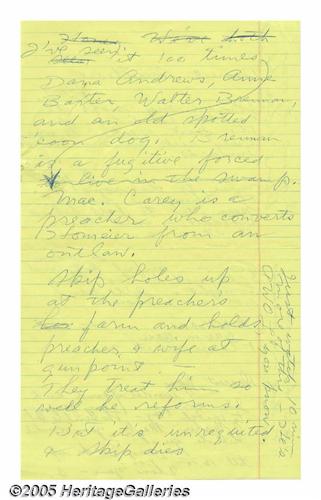 I've seen it 100 times
Dana Andrews, Anne
Baxter, Walter Brennan,
and an old spotted
'coon dog. Brennan
is a fugitive forced
to live in the swamp.
Mac. Carey is a
preacher who converts
Homeier from an
outlaw.
Skip holes up
at the preachers
farm and holds
preacher & wife at
gunpoint.
They treat him so
well he reforms.
But it's unrequited
& Skip dies
©2005 HeritageGalleries